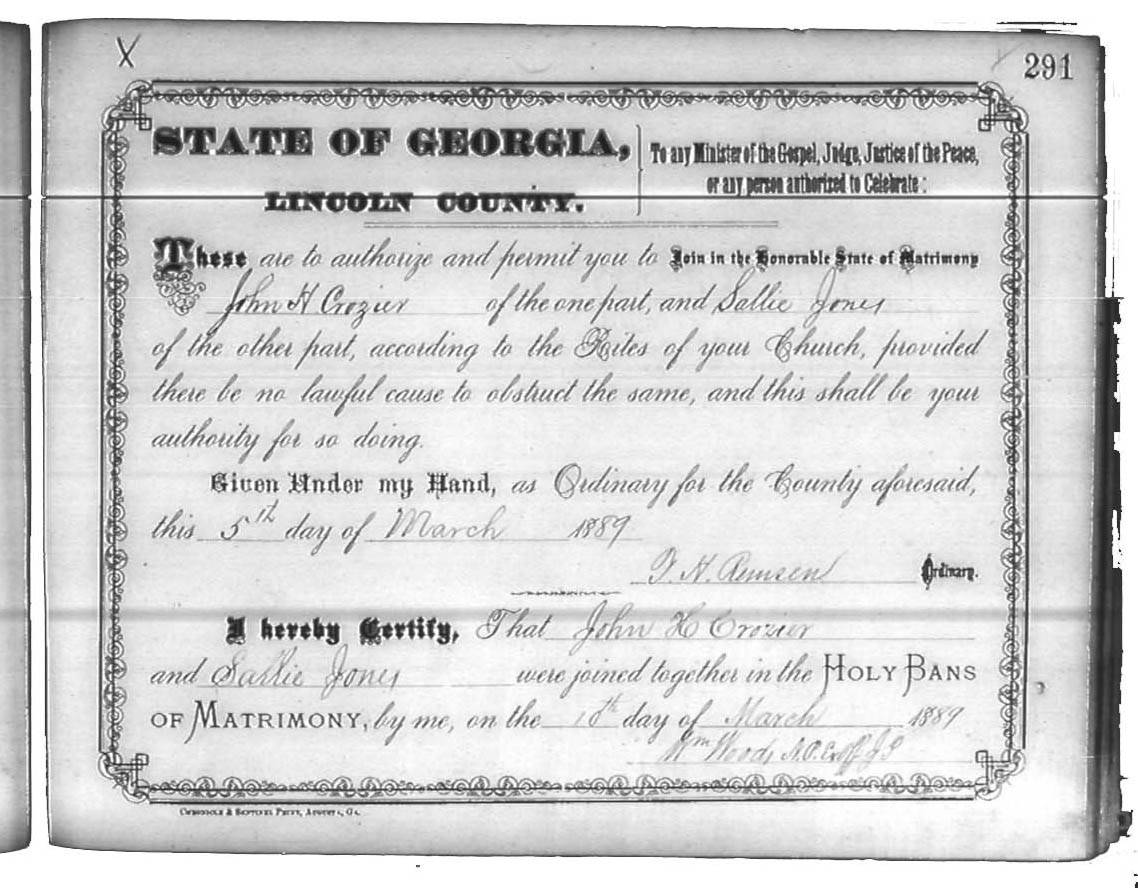 X
291
STATE OF GEORGIA,
LINCOLN COUNTY.
To any Minister of the Gospel, Judge, Justice of the Peace,
or any person authorized to Celebrate:
These are to authorize and permit you to Join in the Honorable State of Matrimony
John H Crozier of the one part, and Sallie Jones
of the other part, according to the Rites of your Church, provided
there be no lawful cause to obstruct the same, and this shall be your
authority for so doing.
Given Under my Hand, as Ordinary for the County aforesaid,
this 5th day of March 1889
T. H. Remsen Ordinary.
I hereby Certify, That John H Crozier
and Sallie Jones were joined together in the HOLY BANS
OF MATRIMONY, by me, on the 10th day of March 1889
Wm Woods N.P. Exoff J P
CHRONICLE & SENTINEL PRINT, AUGUSTA, GA.